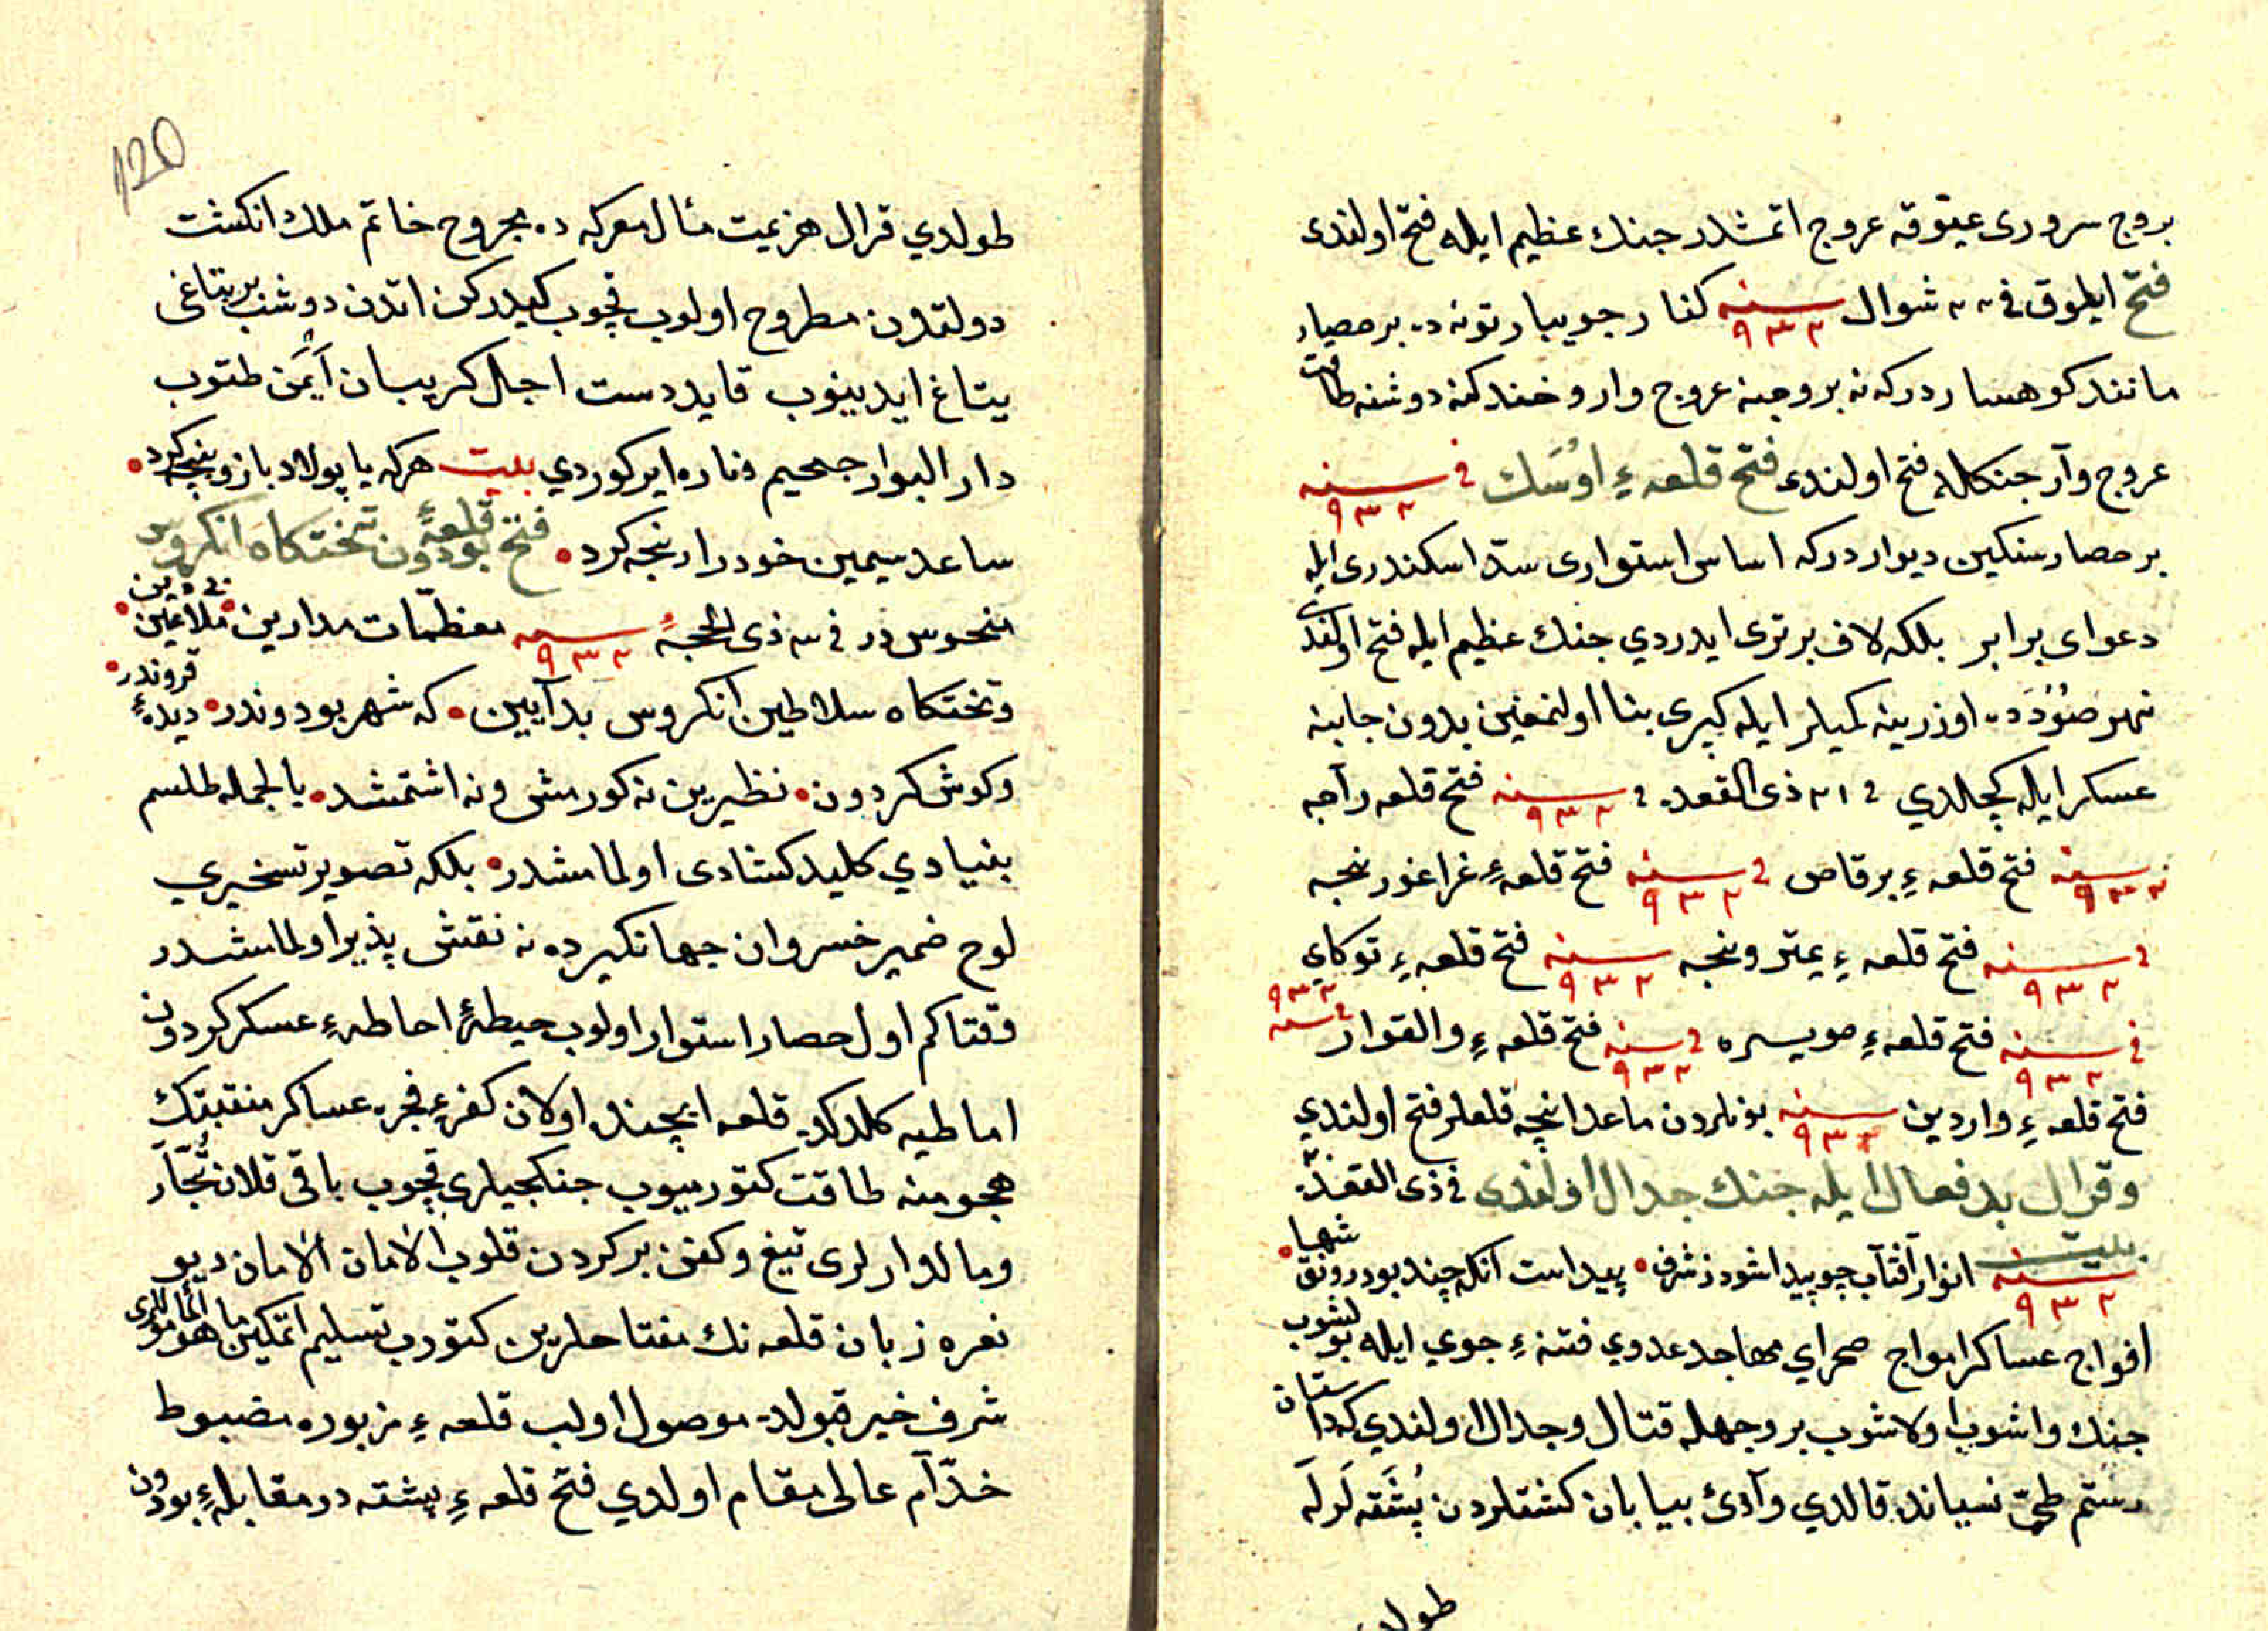 بروج سروری عیوقه عروج اتمشدر جنك عظیم ایله فتح اولندی
فتح ایلوق فی ٢٢ شوال سنه ٩٣٢ كنار جویبار تونه ده بر حصار
مانند كوهسار دركه نه بروجنه عروج وار و خندكنه دوشنه
عروج وآر جنكله فتح اولندی فتح قلعهٔ اوُسَك فی سنه ٩٣٢
بر حصار سنكین دیوار دركه اساس استواری سدّ اسكندری ایله
دعوای برابر بلكه لاف برتری ایدردی جنك عظیم ایله فتح اولندی
نهر صوُوَده اوزرینه كمیلر ایله كپری بنا اولنمغین بدون جانبنه
عسكر ایله كچلدی فی ٢١ ذی القعده فی سنه ٩٣٢ فتح قلعه رآجه
سنه ٩٣٢ فتح قلعهٔ برقاص فی سنه ٩٣٢ فتح قلعهٔ غراغورنجه
فی سنه ٩٣٢ فتح قلعهٔ یمترونجه سنه ٩٣٢ فتح قلعهٔ توكای
فی سنه ٩٣٢ فتح قلعهٔ صویسره فی سنه ٩٣٢ فتح قلعهٔ والقوار فی سنه ٩٣٢
فتح قلعهٔ واردین سنه ٩٣٢ بونلردن ماعدا نیچه قلعلر فتح اولندی
وقرال بدفعال ایله جنك جدال اولندی فی ذی القعده
سنه ٩٣٢ بیت انوار آفتاب چو پیدا شود ز شرق • پیداست آنكه چند بود رونق شها •
افواج عساكر امواج صحرای مهاجده عدوی فتنهٔ جوی ایله بولشوب
جنك واشوب اولاشوب بر وجهله قتال وجدال اولندی كه داستان
رستم طیّ نسیانده قالدی وآدئ بیابان كشتلردن پُشتَه لَرلَه
طولدی
١٢٥
طولدی قرال هزیمت مئال معركه ده مجروح خاتم ملك انكشت
دولتدن مطروح اولوب قچوب كیدركن اتدن دوشب بر بتاغی
یتاغ ایدینوب قاید دست اجل كریبان آیمَن طتوب
دار البوار جحیم وناره ایركوردی بیت هركه با پولاد بازو پنجه كرد •
ساعد سیمین خود را رنجه كرد • فتح قلعهٔ بودون تختكاه انكروس
منحوس در فی ٣ ذی الحجهٔ سنه ٩٣٢ معظمّات مداین • ملاعین بی دین •
وتختكاه سلاطین انكروس بدآیین • كه شهر بودوندر • دیدهٔ قروندر •
وكوش كردون • نظیرین نه كورمش ونه اشتمشد • بالجمله طلسم
بنیادی كلید كشادی اولمامشدر • بلكه تصویر تسخیری
لوح ضمیر خسروان جهانكیرده نه نقش پذیر اولمامشدر
وقتاكم اول حصار استوار اولوب حیطهٔ احاطهٔ عسكر كردون
اماطیه كلدكده قلعه ایچنده اولان كفرهٔ فجره عساكر منقبتك
هجومنه طاقت كتورمیوب جنكجیلری قچوب باقی قلان تُجّار
ومالدوارلری تیغ وكفن بركردن قلوب الامان الامان دیو
نعره زبان قلعه نك مفتاحلرین كتورب تسلیم اتمكین
شرف خیر قبولده موصول اولب قلعهٔ مزبوره مضبوط
خدّآم عالی مقام اولدی فتح قلعهٔ پشته در مقابلهٔ بودون